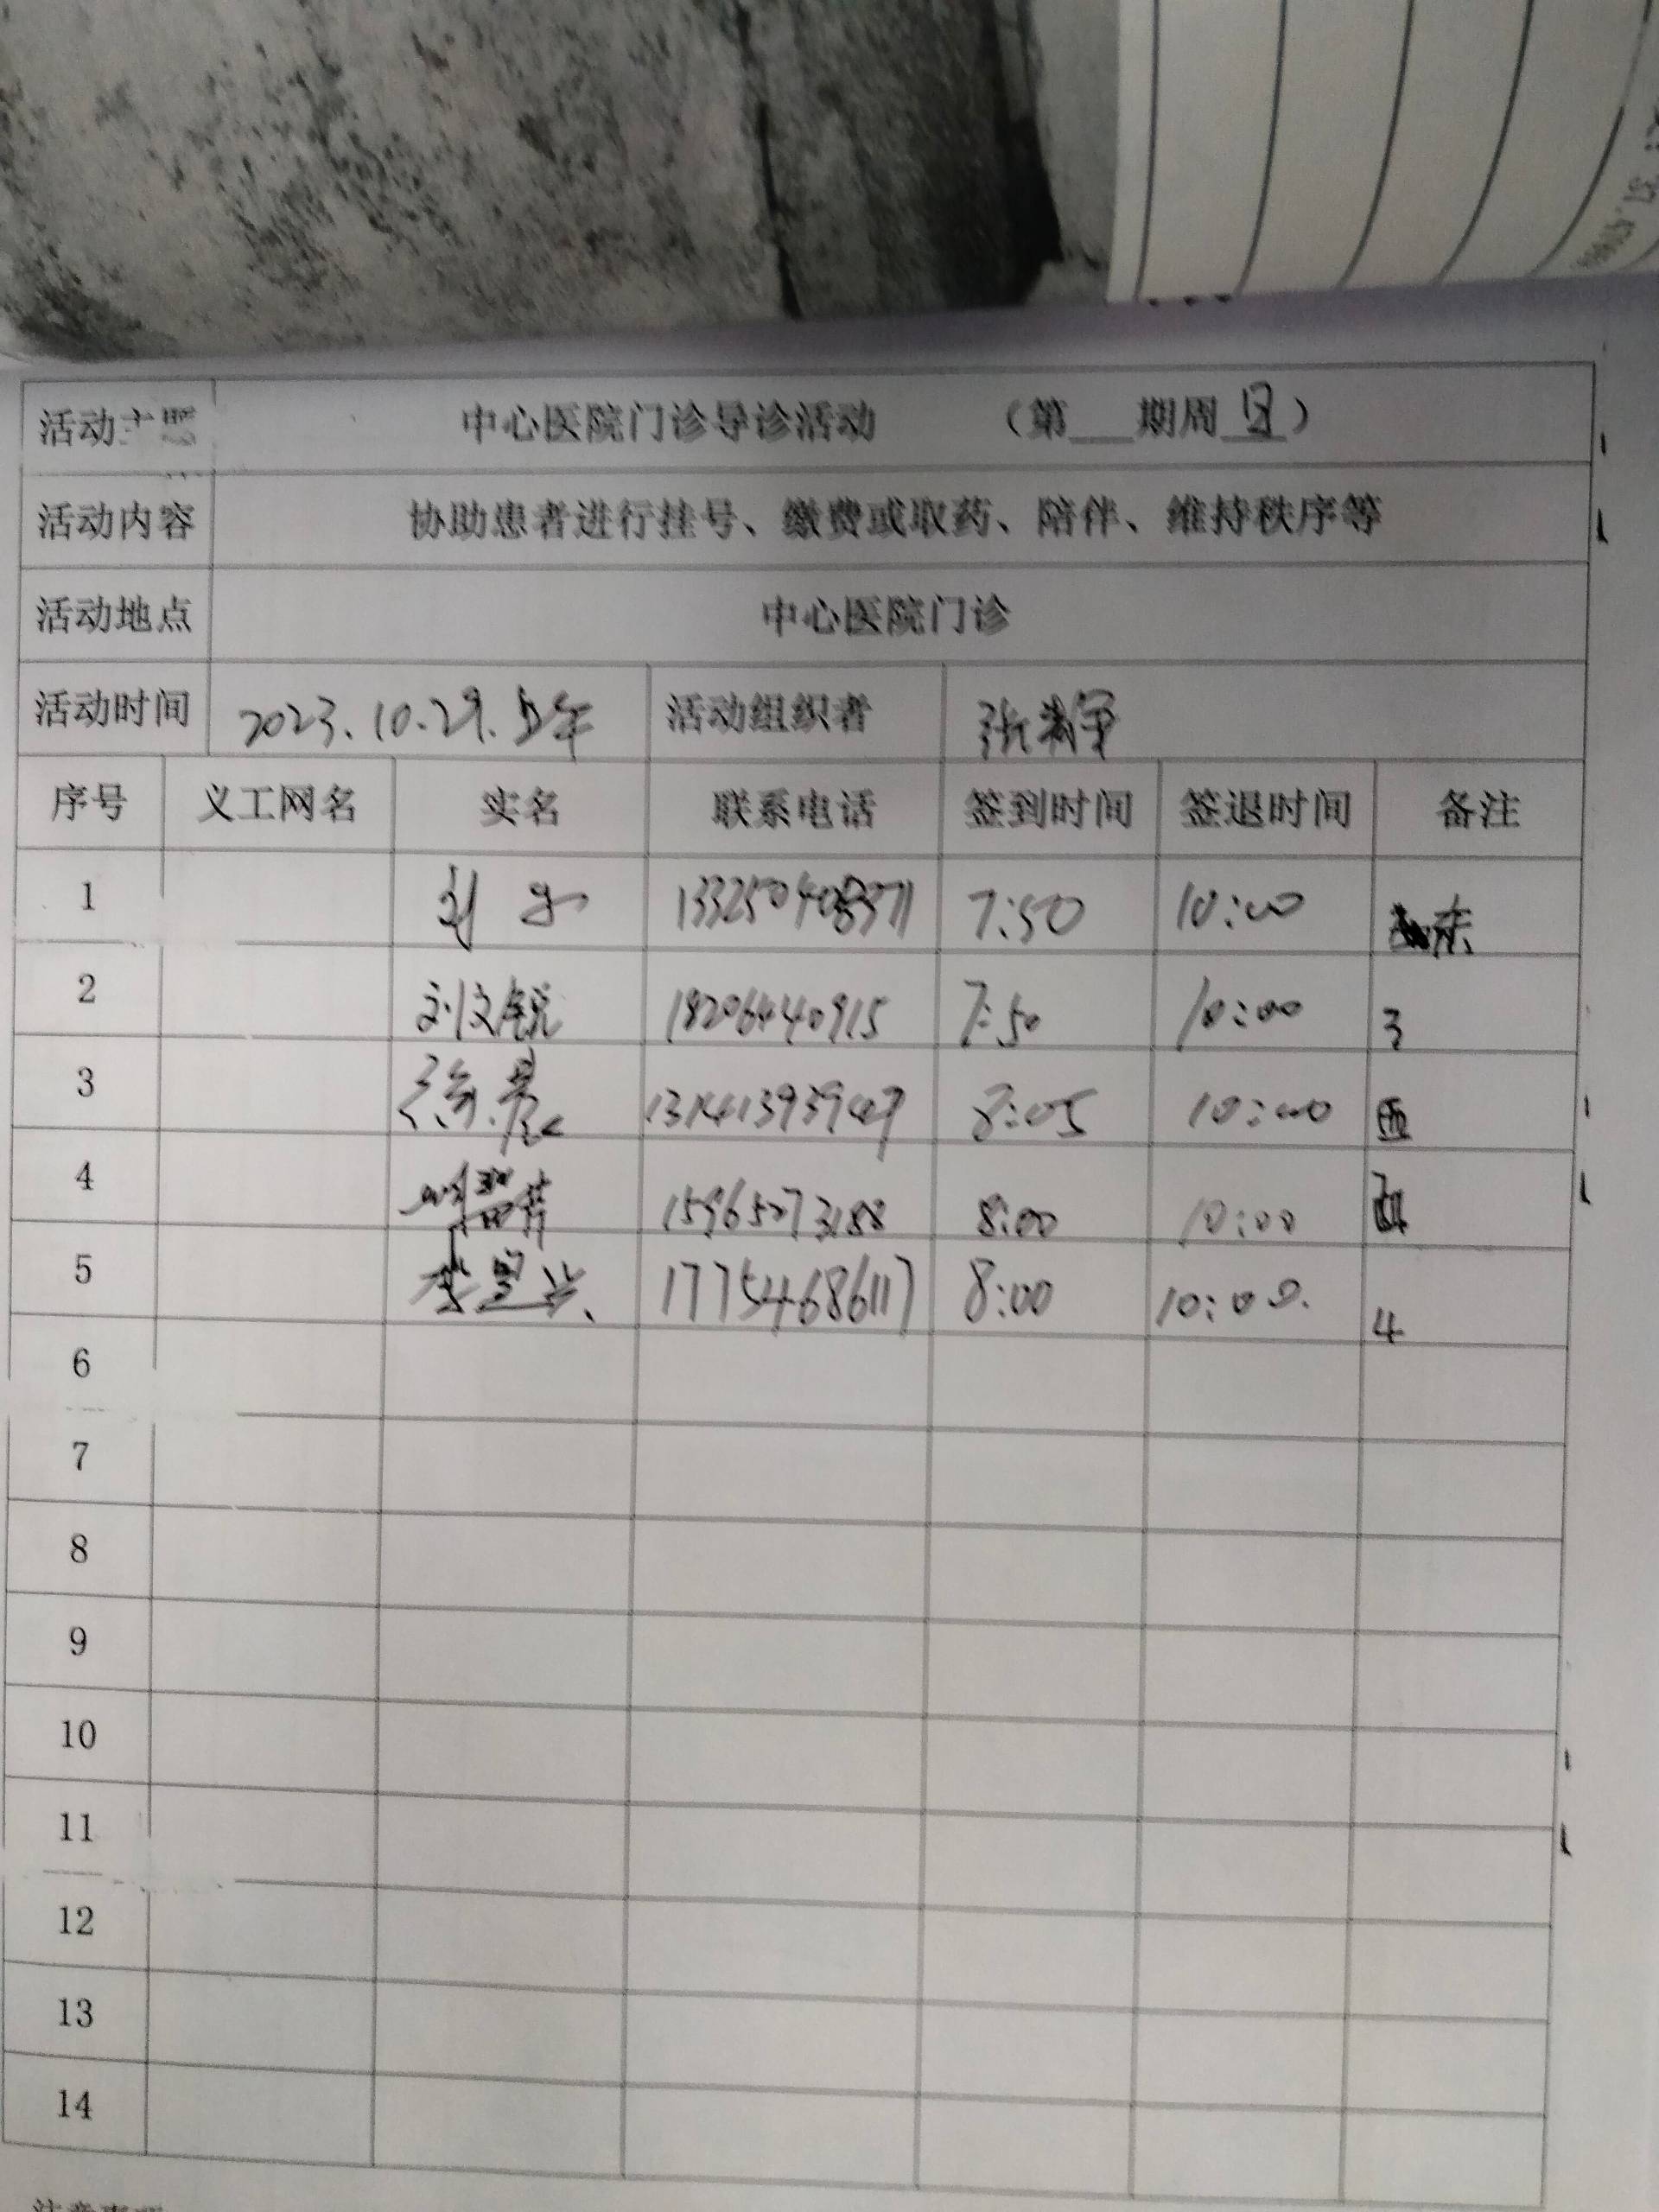 活动主题 中心医院门诊导诊活动 (第___期周日)
活动内容 协助患者进行挂号、缴费或取药、陪伴、维持秩序等
活动地点 中心医院门诊
活动时间 2023.10.29.上午 活动组织者 张
序号 义工网名 实名 联系电话 签到时间 签退时间 备注
1 刘 7:50 10:00 东
2 刘文锐 18206440915 7:50 10:00 3
3 徐晨 13141393947 8:05 10:00 西
4 15965073188 8:00 10:00
5 李 17754686117 8:00 10:00. 4
6
7
8
9
10
11
12
13
14